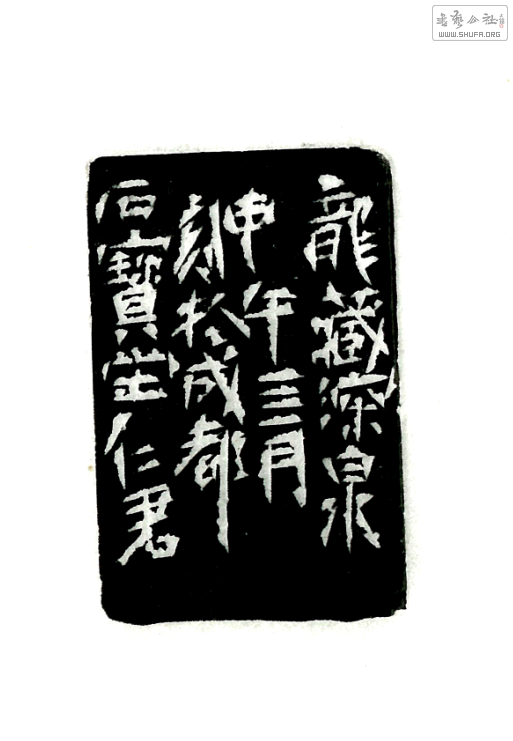 龍藏深泉
甲午三月
刻於成都
石寶堂仁君
書藝公社
WWW.SHUFA.ORG